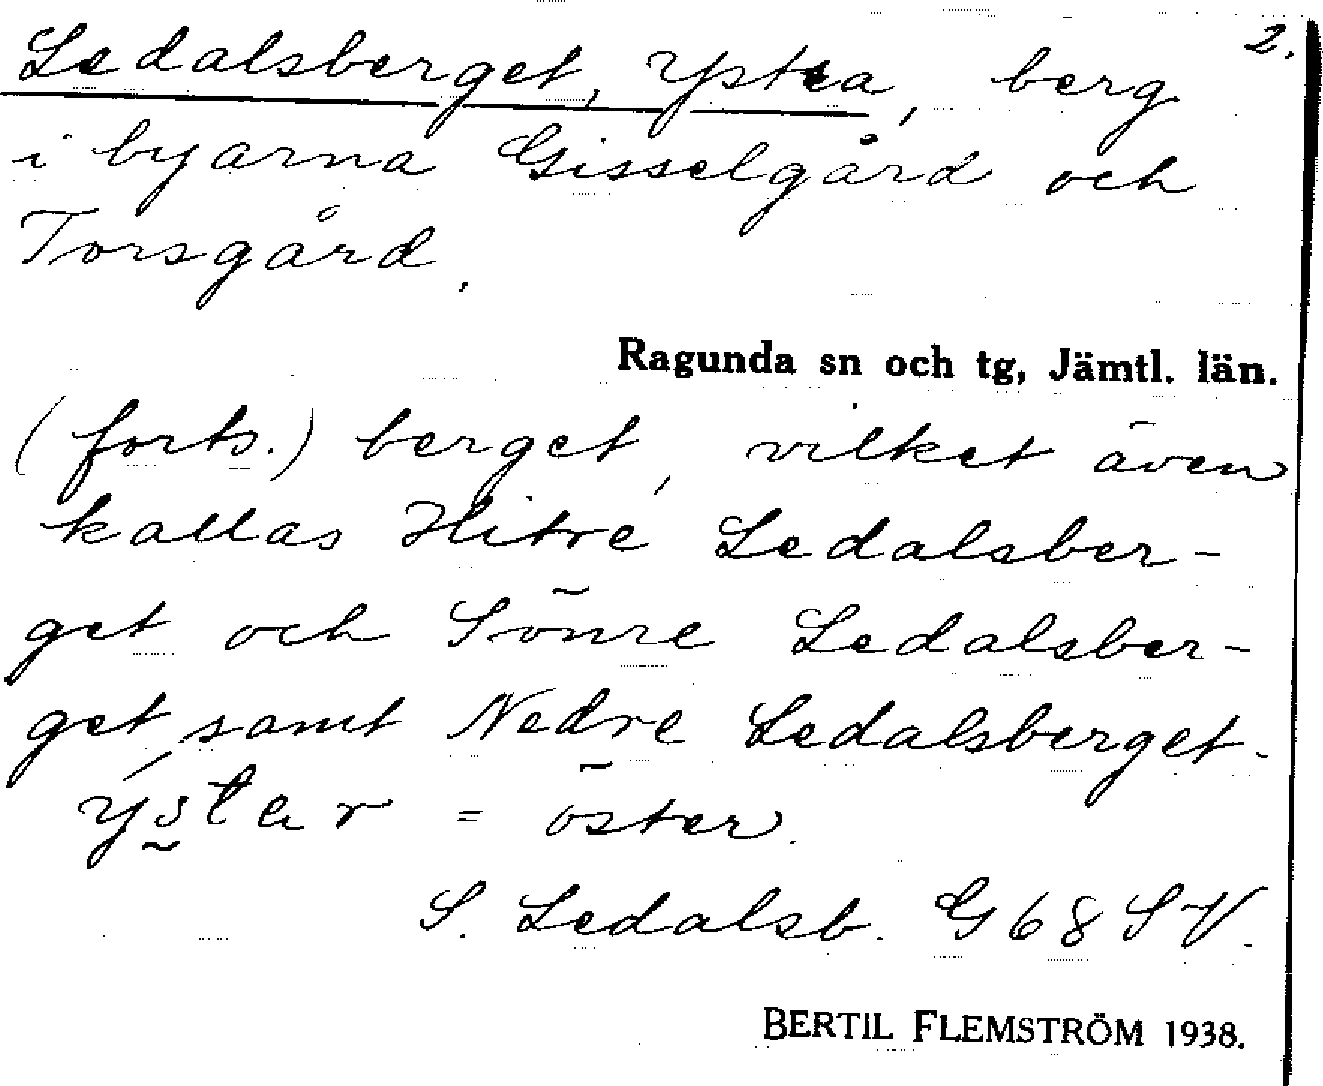 2.
Ledalsberget, Ystra, berg
i byarna Gisselgård och
Torsgård.
Ragunda sn och tg, Jämtl. län.
(forts.) berget, vilket även
kallas Hitre Ledalsber-
get och Sönre Ledalsber-
get, samt Nedre Ledalsberget.
ýstar = öster.
S. Ledalsb. G 68 SV.
BERTIL FLEMSTRÖM 1938.